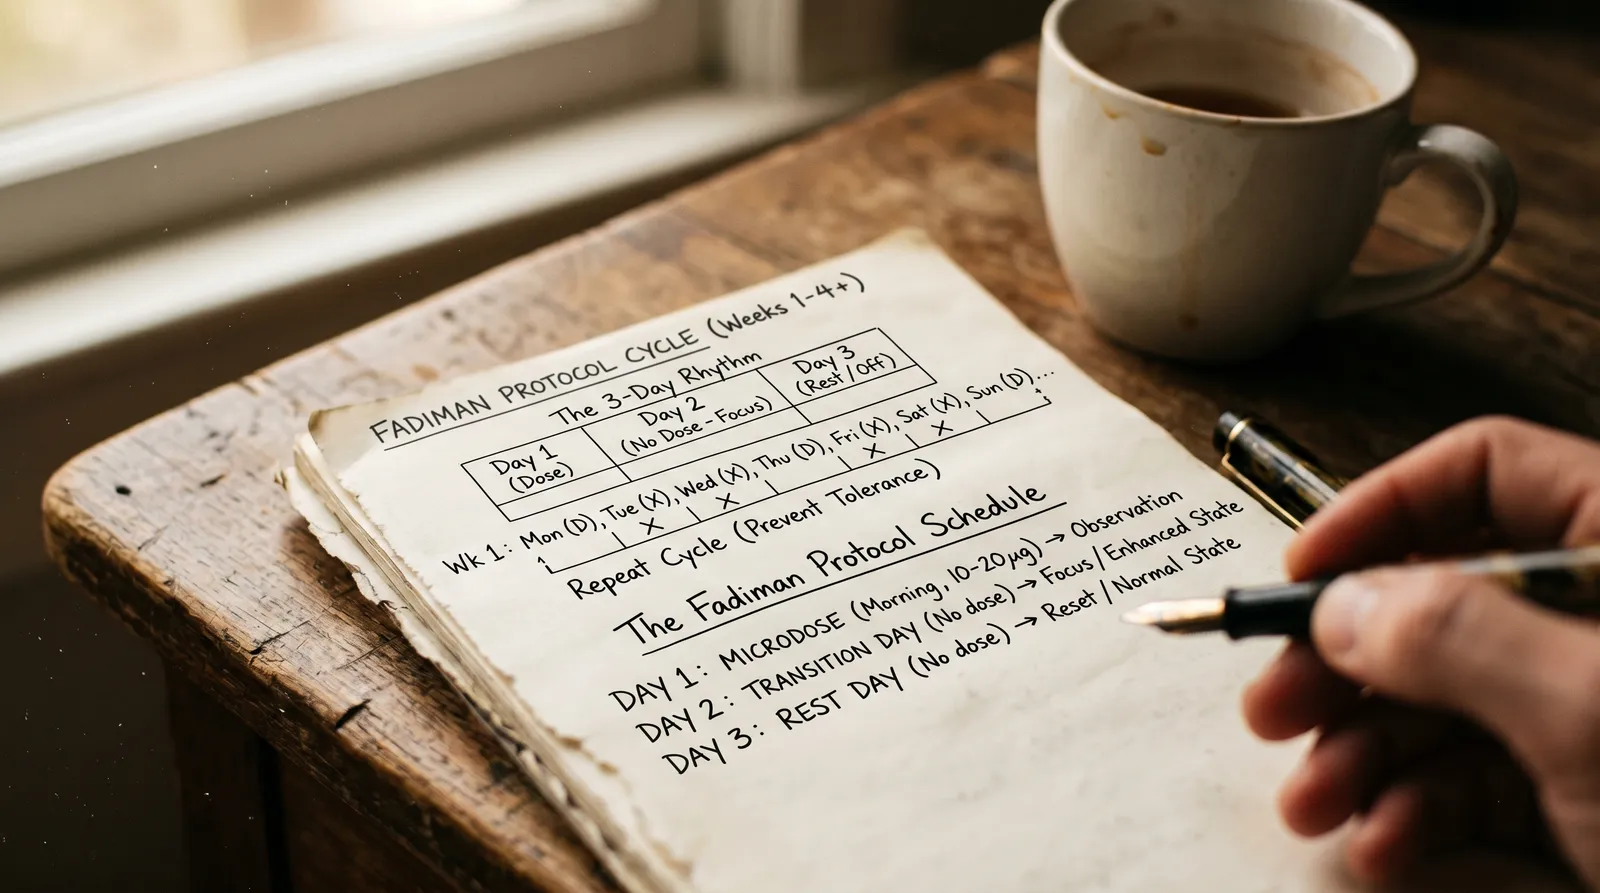 FADIMAN PROTOCOL CYCLE (Weeks 1-4+)
The 3-Day Rhythm
Day 1 (Dose)
Day 2 (No Dose - Focus)
Day 3 (Rest/Off)
Wk 1: Mon (D), Tue (X), Wed (X), Thu (D), Fri (X), Sat (X), Sun (D)...
1 X X X X
Repeat Cycle (Prevent Tolerance)
The Fadiman Protocol Schedule
DAY 1: MICRODOSE (Morning, 10-20µg) → Observation
DAY 2: TRANSITION DAY (No dose) → Focus/Enhanced State
DAY 3: REST DAY (No dose) → Reset/Normal State